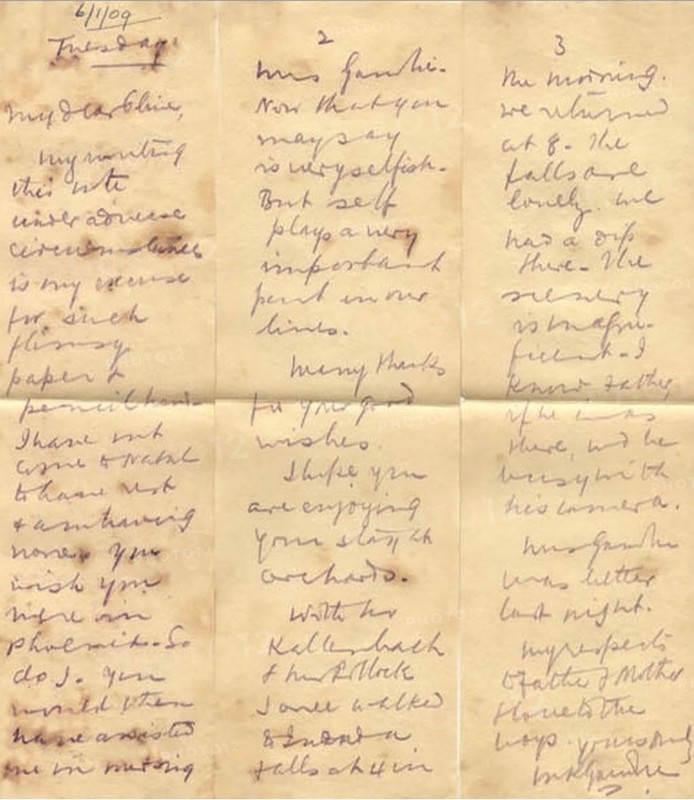 6/1/09
Tuesday
My dear Olive,
My writing
this note
under adverse
circumstances
is my excuse
for such
flimsy
paper &
pencil hand.
I have not
come to Natal
to have rest
& am having
none. You
wish you
were in
Phoenix. So
do I. You
would then
have assisted
me in nursing
2
Mrs Gandhi.
Now that you
may say
is very selfish.
But self
plays a very
important
part in our
lives.
Many thanks
for your good
wishes.
I hope you
are enjoying
your stay at
orchards.
With Mr
Kallenbach
& Mrs Pollock
I once walked
to Inanda
falls at 4 in
3
the morning.
we returned
at 8. The
falls are
lovely. We
had a dip
there. The
scenery
is magni-
ficent. I
know Father,
if he was
there, wd be
busy with
his camera.
Mrs Gandhi
was better
last night.
My respects
to Father & Mother
& love to the
boys. Yours
MKGandhi